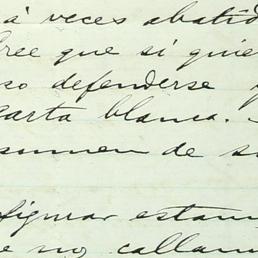 á veces abatid
cree que si quie
so defenderse y
carta blanca.
sumen de su
figurar estam
e nos callam